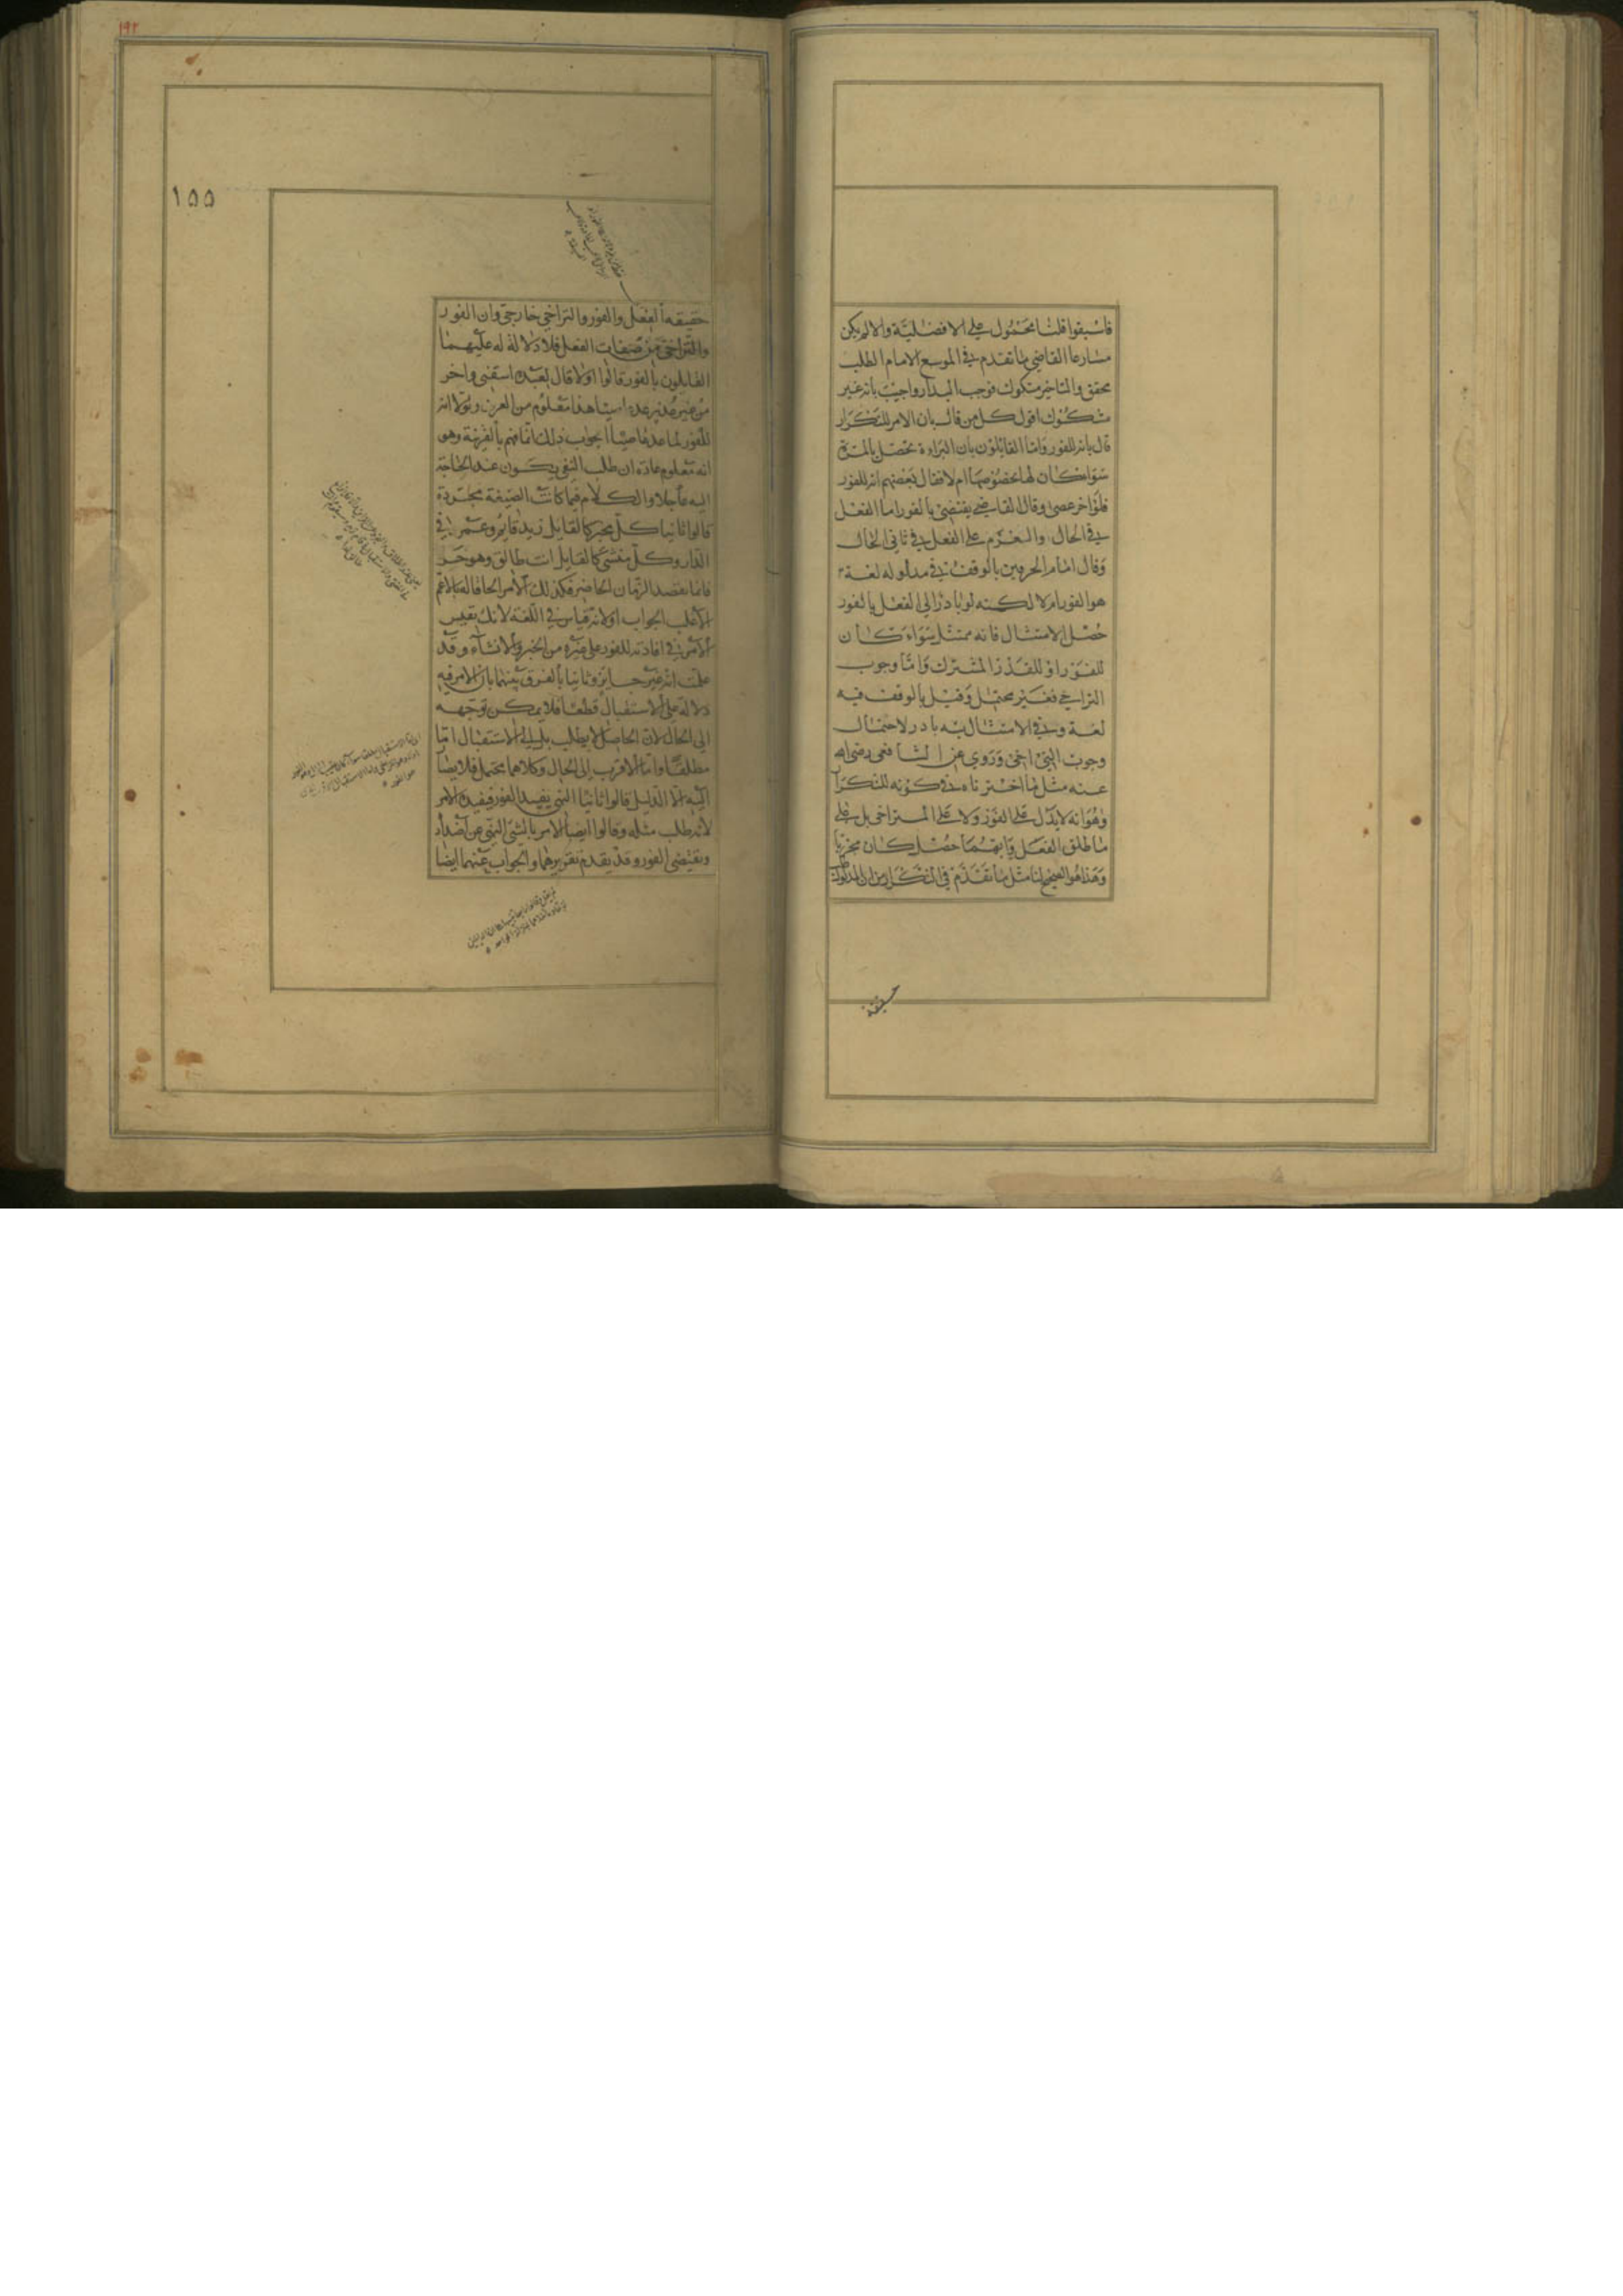 فاسبقوا قلنا محمول على الافضلية والا لم يكن
مسارعا القاضي ما تقدم في الموسع الامام الطلب
محقق والتاخير مشكوك فوجب البدار واجيب بانه غير
مشكوك اقول كل من قال بان الامر للتكرار
قال بانه للفور واما القائلون بان البراءة تحصل بالمرة
سواء كان لها بخصوصها ام لا فقال بعضهم انه للفور
فلو اخر عصى وقال القاضي يقتضي بالفور اما الفعل
في الحال والعزم على الفعل في ثاني الحال
وقال امام الحرمين بالوقف في مدلوله لغة
هو الفور ام لا لكنه لو بادر الى الفعل بالفور
حصل الامتثال فانه ممتثل سواء كان
للفور او للقدر المشترك واما وجوب
التراخي فغير محتمل وقيل بالوقف فيه
لغة وفي الامتثال ان بادر لاحتمال
وجوب التراخي وروي عن الشافعي رضي الله
عنه مثل ما اخترناه في كونه للتكرار
وهو انه لا يدل على الفور ولا على التراخي بل على
مطلق الفعل وايهما حصل كان مجزيا
وهذا هو الصحيح لنا مثل ما تقدم في التكرار من ان المدلول
حقيقة
١٩٢
١٥٥
حقيقة الفعل والفور والتراخي خارجي وان الفور
والتراخي من صفات الفعل فلا دلالة له عليهما
القايلون بالفور قالوا اولا قال لعبده اسقني واخر
من غير عذر عد عاصيا هذا معلوم من العرف ولولا انه
للفور لما عد عاصيا الجواب ذلك انما فهم بالقرينة وهو
انه معلوم عادة ان طلب السقي يكون عند الحاجة
اليه عاجلا والكلام فيما كانت الصيغة مجردة
قالوا ثانيا كل مخبر كالقايل زيد قايم وعمرو في
الدار وكل منشئ كالقايل انت طالق وهو حر
فانما يقصد الزمان الحاضر فكذلك الامر الحاقا له بالاعم
الاغلب الجواب اولا انه قياس في اللغة لانك تقيس
الامر في افادته للفور على غيره من الخبر والانشاء وقد
علمت انه غير جايز وثانيا بالفرق بينهما بان الامر فيه
دلالة على الاستقبال قطعا فلا يمكن توجهه
الى الحال لان الحاصل لا يطلب بل الى الاستقبال اما
مطلقا واما الاقرب الى الحال وكلاهما محتمل فلا يصار
اليه الا لدليل قالوا ثانيا النهي يفيد الفور فيفيده الامر
لانه طلب مثله وقالوا ايضا الامر بالشئ النهي عن اضداده
ويقتضي الفور وقد يقدم تقريرهما والجواب عنهما ايضا